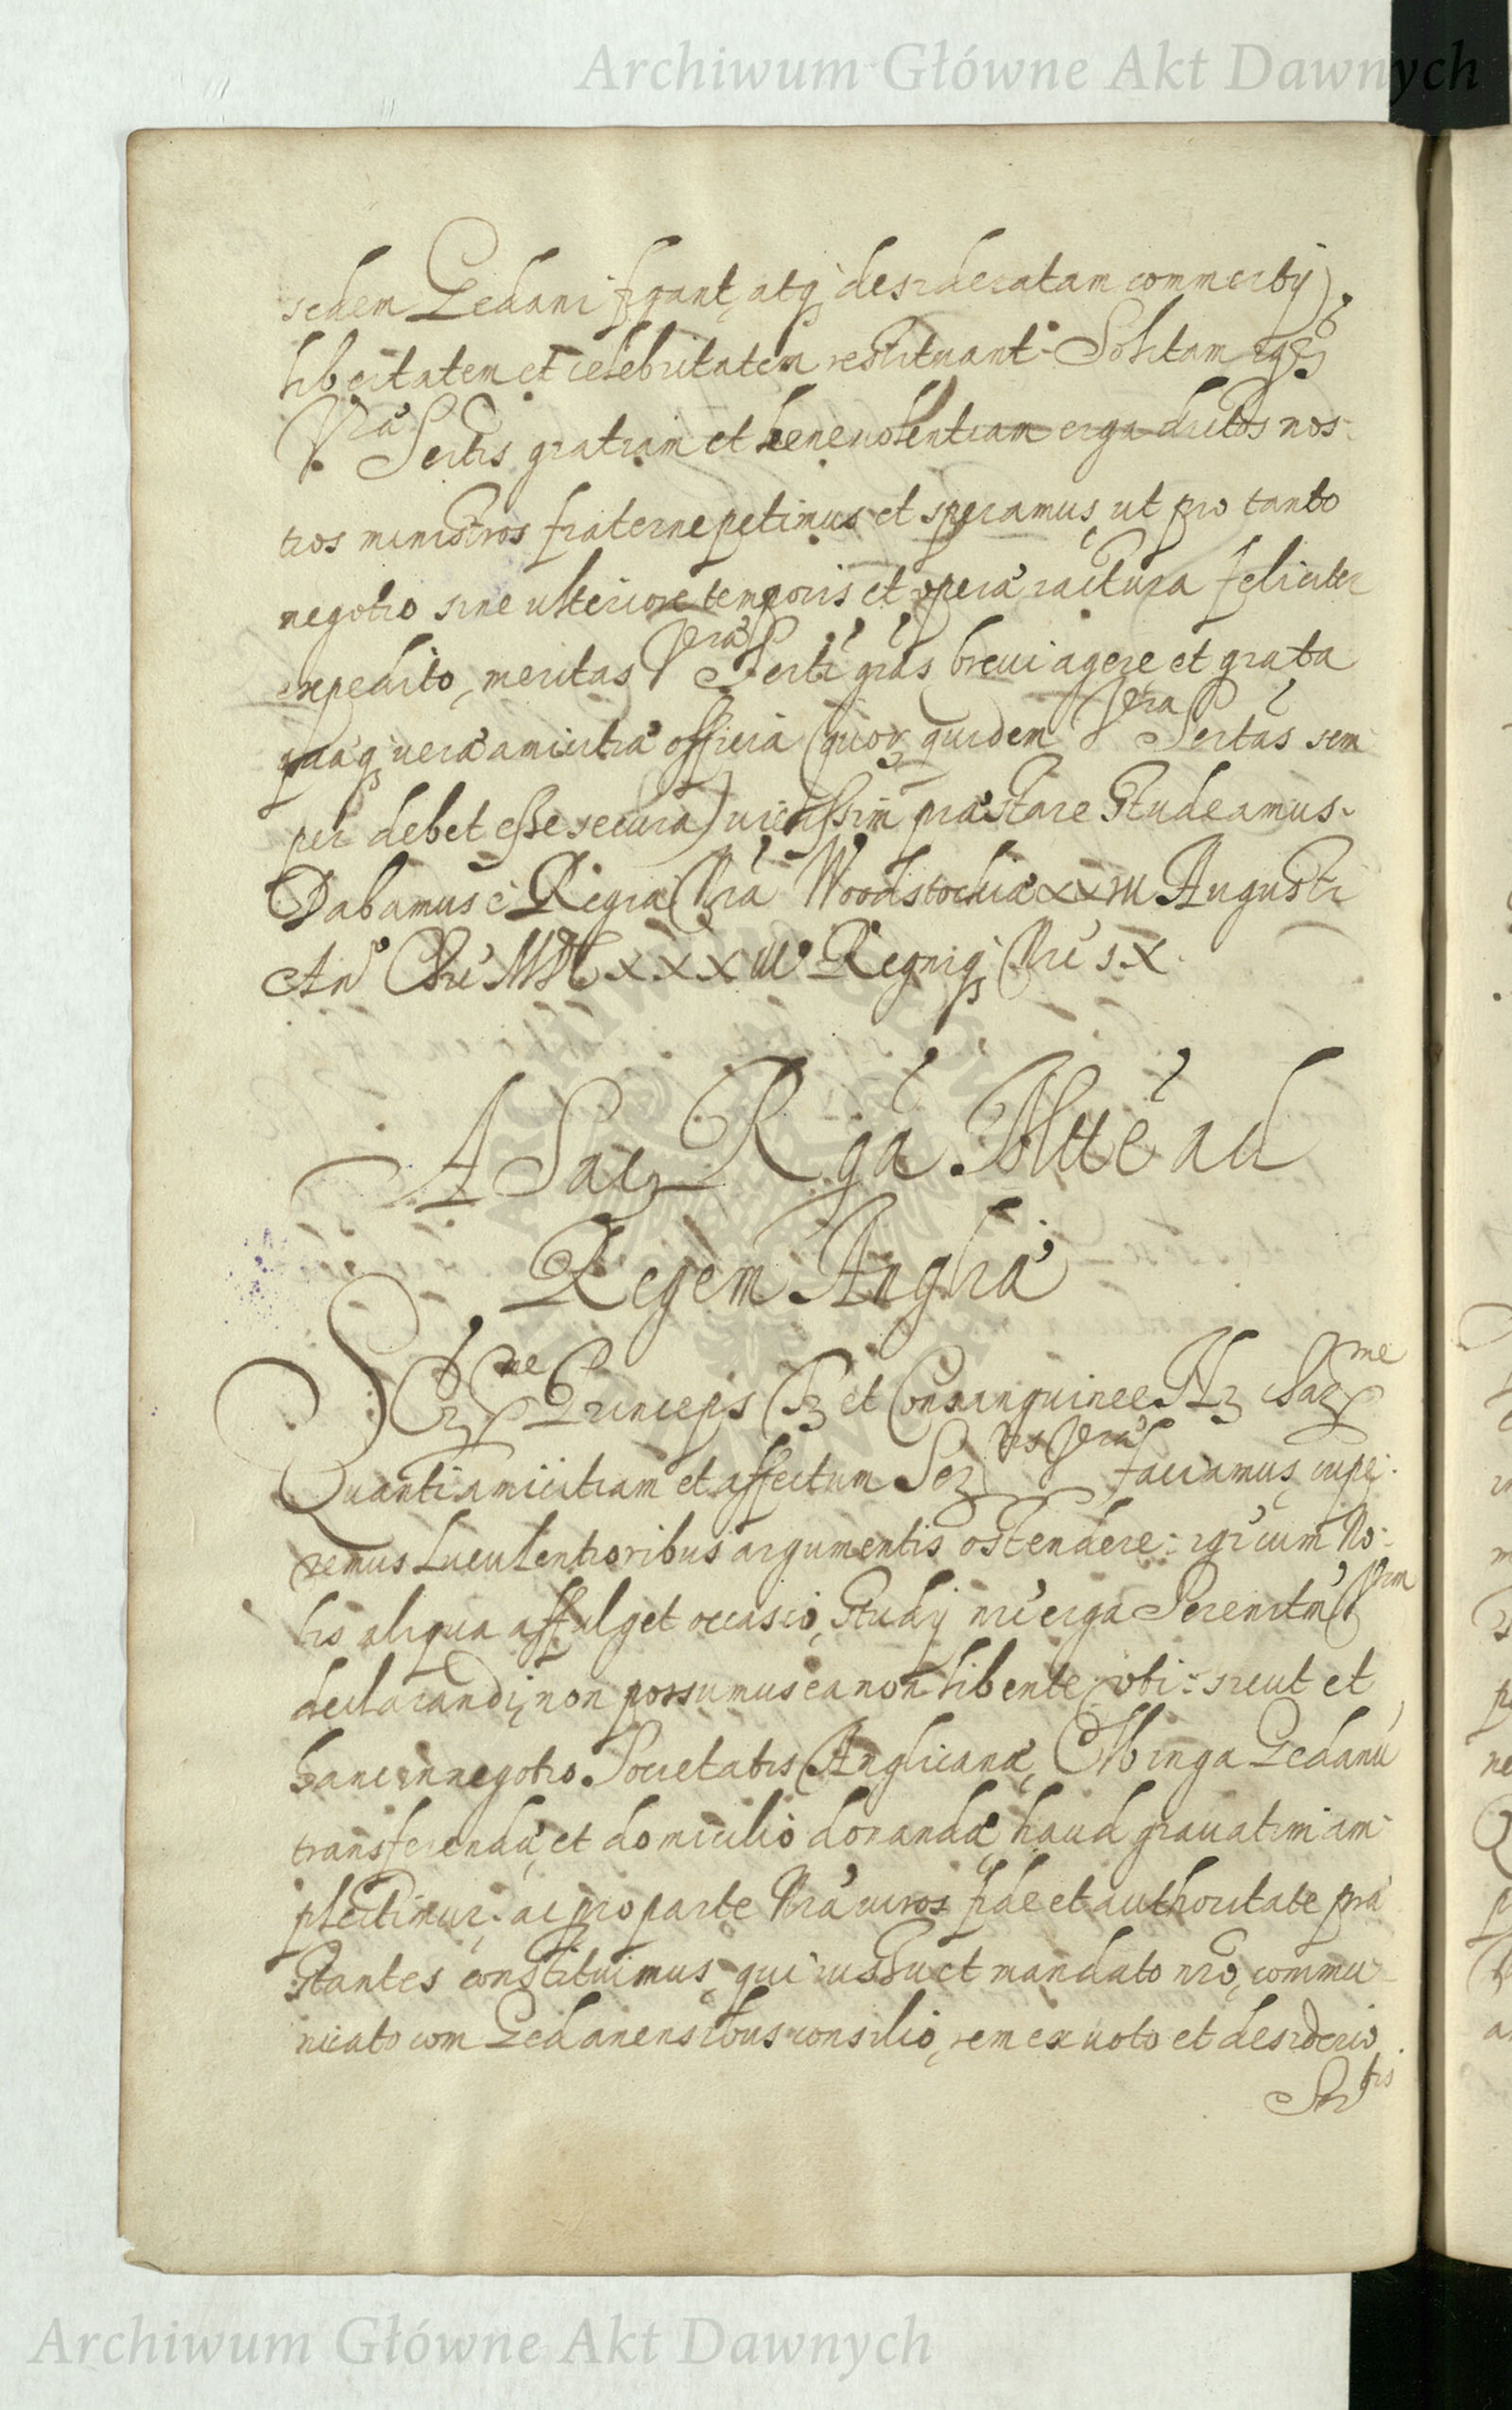 Archiwum Główne Akt Dawnych
sedem Gedani figant, atq desideratam commercij
libertatem et celebritatem restituant. Solitam igr
Vrae Sertis gratiam et beneuolentiam erga dictos nos-
tros ministros fraterne petimus et speramus, ut pro tanto
negotio sine ulteriore temporis et operae iactura feliciter
expedito, meritas Vrae Serti gras breui agere, et grata
quaeq uerae amicitiae officia (quor quidem Vra Sertas sem
per debet esse secura) uicissim praestare studeamus.
Dabamus è Regia Nra Woodstochiae XXIII Augusti
An Chri MDCXXXIII Regniq Nri IX.
A Sac R gia Mtte ad
Regem Angliae
Ser me Princeps Fr et Consanguinee Nr Char me
Quanti amicitiam et affectum Ser tis Vrae faciamus, cupe-
remus luculentioribus argumentis ostendere: igr cum No-
bis aliqua affulget occasio, studij nri erga Serenitm Vram
declarandi, non possumus ea non libenter uti: sicut et
hanc in negotio Societatis Anglicanae, Elbinga Gedanu
transferendae, et domicilio donandae, haud grauatim am-
plectimur: ac pro parte Nra uiros fide et authoritate prae
stantes constituimus, qui iussu et mandato nro, commu-
nicato com Gedanensibus consilio, rem ex uoto et desiderio
Ser tis
Archiwum Główne Akt Dawnych